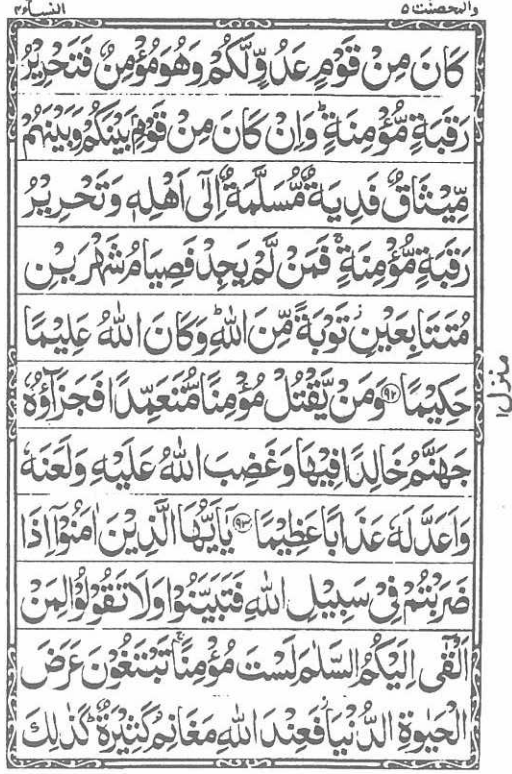 والمحصنت ۵ النساء ۴
كَانَ مِنْ قَوْمٍ عَدُوٍّ لَّكُمْ وَهُوَ مُؤْمِنٌ فَتَحْرِيْرُ
رَقَبَةٍ مُّؤْمِنَةٍ ؕ وَاِنْ كَانَ مِنْ قَوْمٍۭ بَيْنَكُمْ وَبَيْنَهُمْ
مِّيْثَاقٌ فَدِيَةٌ مُّسَلَّمَةٌ اِلٰٓى اَهْلِهٖ وَتَحْرِيْرُ
رَقَبَةٍ مُّؤْمِنَةٍ ۚ فَمَنْ لَّمْ يَجِدْ فَصِيَامُ شَهْرَيْنِ
مُتَتَابِعَيْنِ ؗ تَوْبَةً مِّنَ اللّٰهِ ؕ وَكَانَ اللّٰهُ عَلِيْمًا
حَكِيْمًا ۝۹۲ وَمَنْ يَّقْتُلْ مُؤْمِنًا مُّتَعَمِّدًا فَجَزَآؤُهٗ
جَهَنَّمُ خَالِدًا فِيْهَا وَغَضِبَ اللّٰهُ عَلَيْهِ وَلَعَنَهٗ
وَاَعَدَّ لَهٗ عَذَابًا عَظِيْمًا ۝۹۳ يٰۤاَيُّهَا الَّذِيْنَ اٰمَنُوْۤا اِذَا
ضَرَبْتُمْ فِيْ سَبِيْلِ اللّٰهِ فَتَبَيَّنُوْا وَلَا تَقُوْلُوْا لِمَنْ
اَلْقٰۤى اِلَيْكُمُ السَّلٰمَ لَسْتَ مُؤْمِنًا ۚ تَبْتَغُوْنَ عَرَضَ
الْحَيٰوةِ الدُّنْيَا ؗ فَعِنْدَ اللّٰهِ مَغَانِمُ كَثِيْرَةٌ ؕ كَذٰلِكَ
منزل ۱